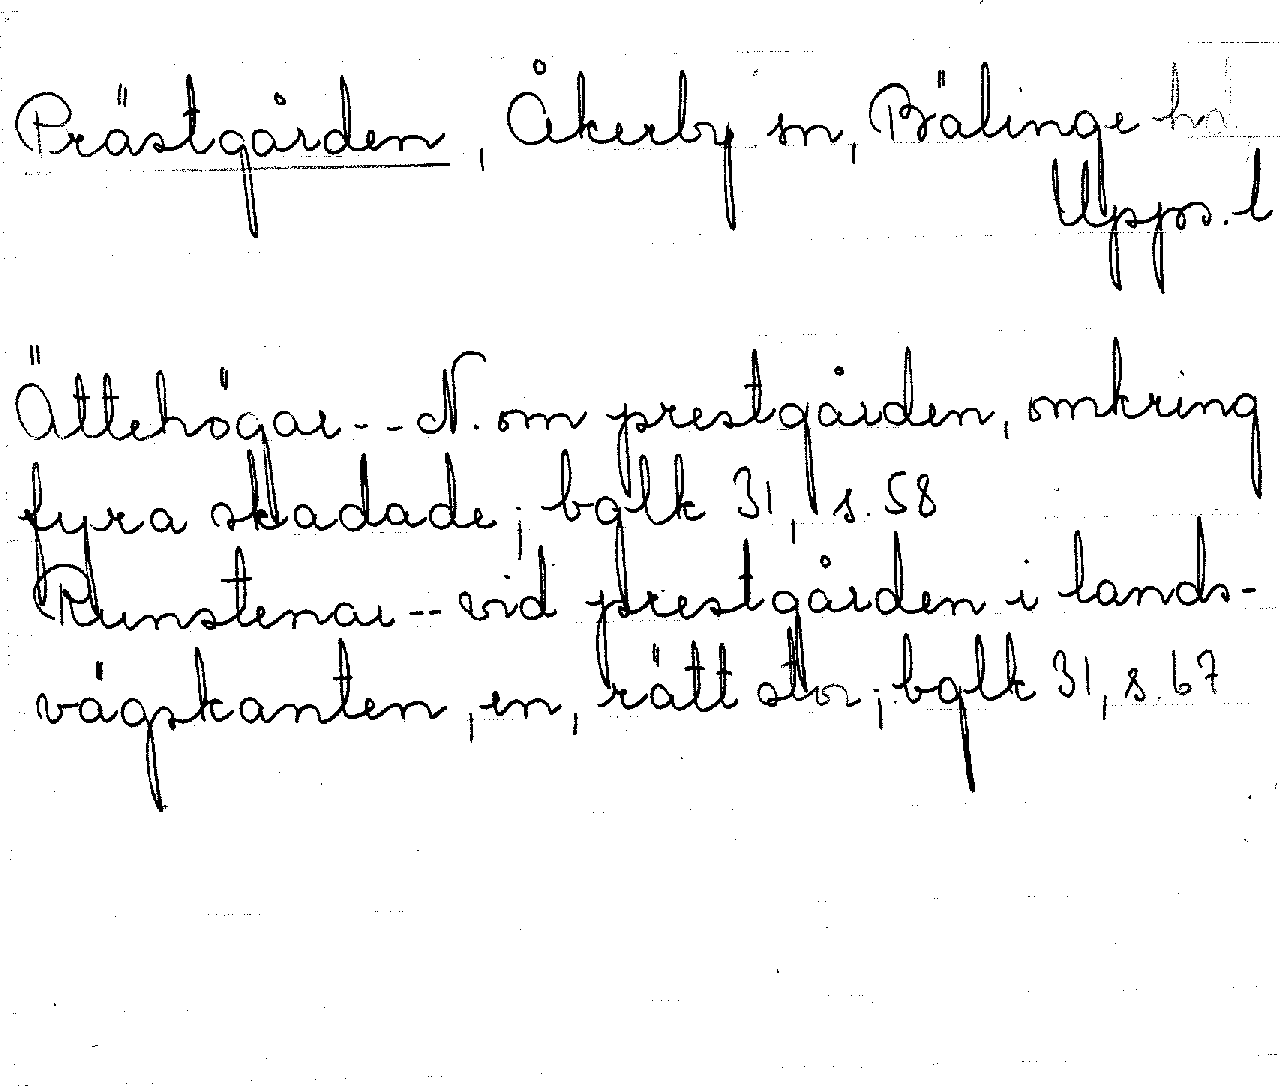 Prästgården, Åkerby sn, Bälinge hd
Upps. l
Ättehögar -- N. om prestgården, omkring
fyra skadade; bglk 31, s. 58
Runstenar -- vid prestgården i lands-
vägskanten, en, rätt stor; bglk 31, s. 67